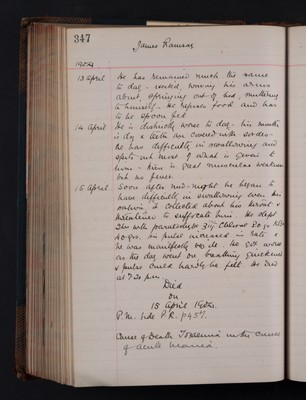 347
James Ramsay
13 April He has remained much the same
to day - excited, throwing his arms
about, springing out of bed, muttering
to himself. He refuses food and has
to be spoon fed.
14 April He is distinctly worse to day - his mouth
is dry & teeth are covered with sordes.
He has difficulty in swallowing and
spits out most of what is given to
him - there is great muscular weakness
but no fever.
15 April Soon after mid-night he began to
have difficulty in swallowing even his
saliva, it collected about his throat &
threatened to suffocate him. He slept
40 grs. his pulse increased in rate &
he was manifestly worse. He got worse
as the day went on breathing quickened
& pulse could hardly be felt. He died
at 7.20 p.m.
Died
on
15 April
P.M. vide P.R. p 457.
Cause of Death: Toxaemia in the course
of acute mania.